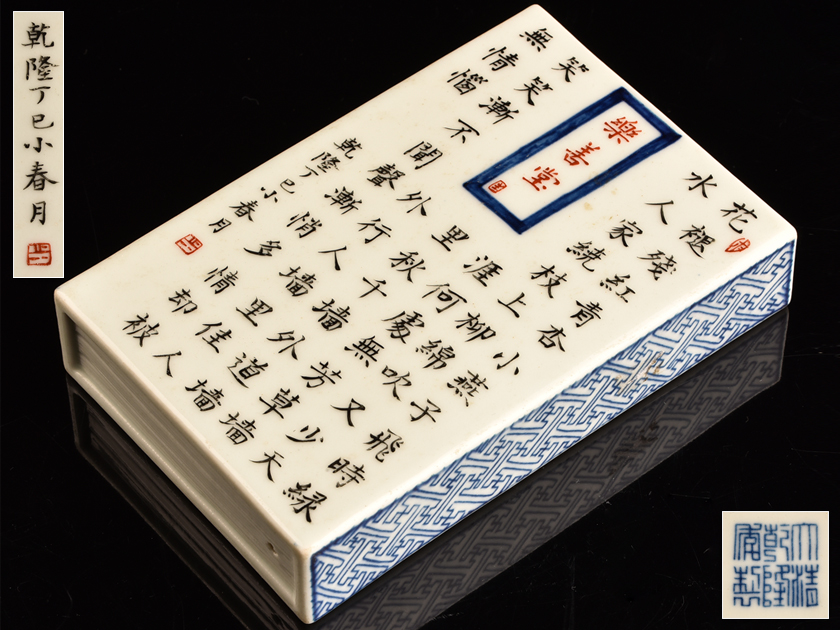 乾隆丁巳小春月
花褪殘紅青杏小燕子飛時緑
水人家繞枝上柳綿吹又少天
涯何處無芳草墻
里秋千墻外道墻
外行人墻里佳人
樂善堂
笑笑漸不聞聲漸悄多情却被
無情惱
乾隆丁巳小春月
大清
乾隆
年製